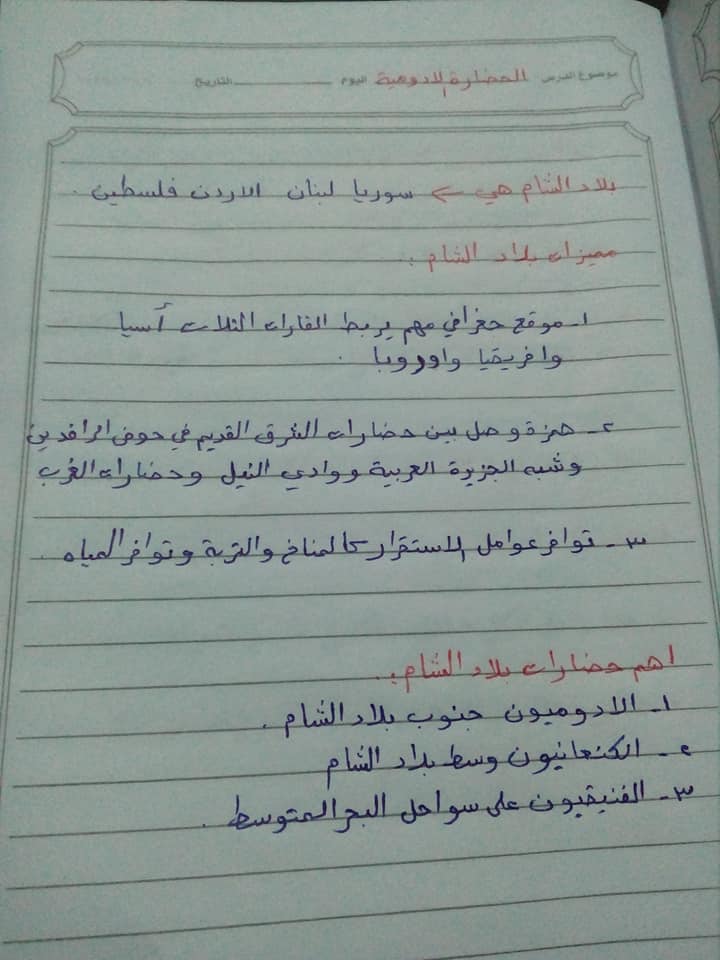 موضوع الدرس الحضارة الادومية اليوم ــــــــ التاريخ
بلاد الشام هي ← سوريا لبنان الاردن فلسطين .
مميزات بلاد الشام :
١- موقع جغرافي مهم يربط القارات الثلاث أسيا
وافريقيا واوروبا .
٢- همزة وصل بين حضارات الشرق القديم في حوض الرافدين
وشبه الجزيرة العربية ووادي النيل وحضارات الغرب
٣- توافر عوامل الاستقرار كالمناخ والتربة وتوافر المياه .
اهم حضارات بلاد الشام :
١- الادوميون جنوب بلاد الشام .
٢- الكنعانيون وسط بلاد الشام
٣- الفنيقيون على سواحل البحر المتوسط .